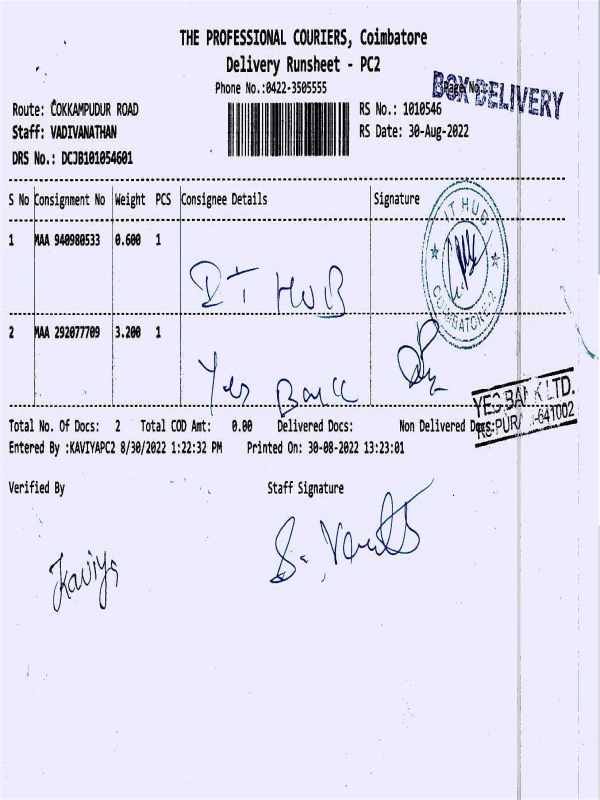 THE PROFESSIONAL COURIERS, Coimbatore
Delivery Runsheet - PC2
Phone No.:0422-3505555
Page No.:
BOX DELIVERY
Route: COKKAMPUDUR ROAD
RS No.: 1010546
Staff: VADIVANATHAN
RS Date: 30-Aug-2022
DRS No.: DCJB101054601
S No Consignment No Weight PCS Consignee Details Signature
IT HUB
COIMBATORE-2
1 MAA 940980533 0.600 1
IT HUB
2 MAA 292077709 3.200 1
Yes Bank
YES BANK LTD.
RS.PURAM-641002
Total No. Of Docs: 2 Total COD Amt: 0.00 Delivered Docs: Non Delivered Docs:
Entered By :KAVIYAPC2 8/30/2022 1:22:32 PM Printed On: 30-08-2022 13:23:01
Verified By Staff Signature
Kaviya